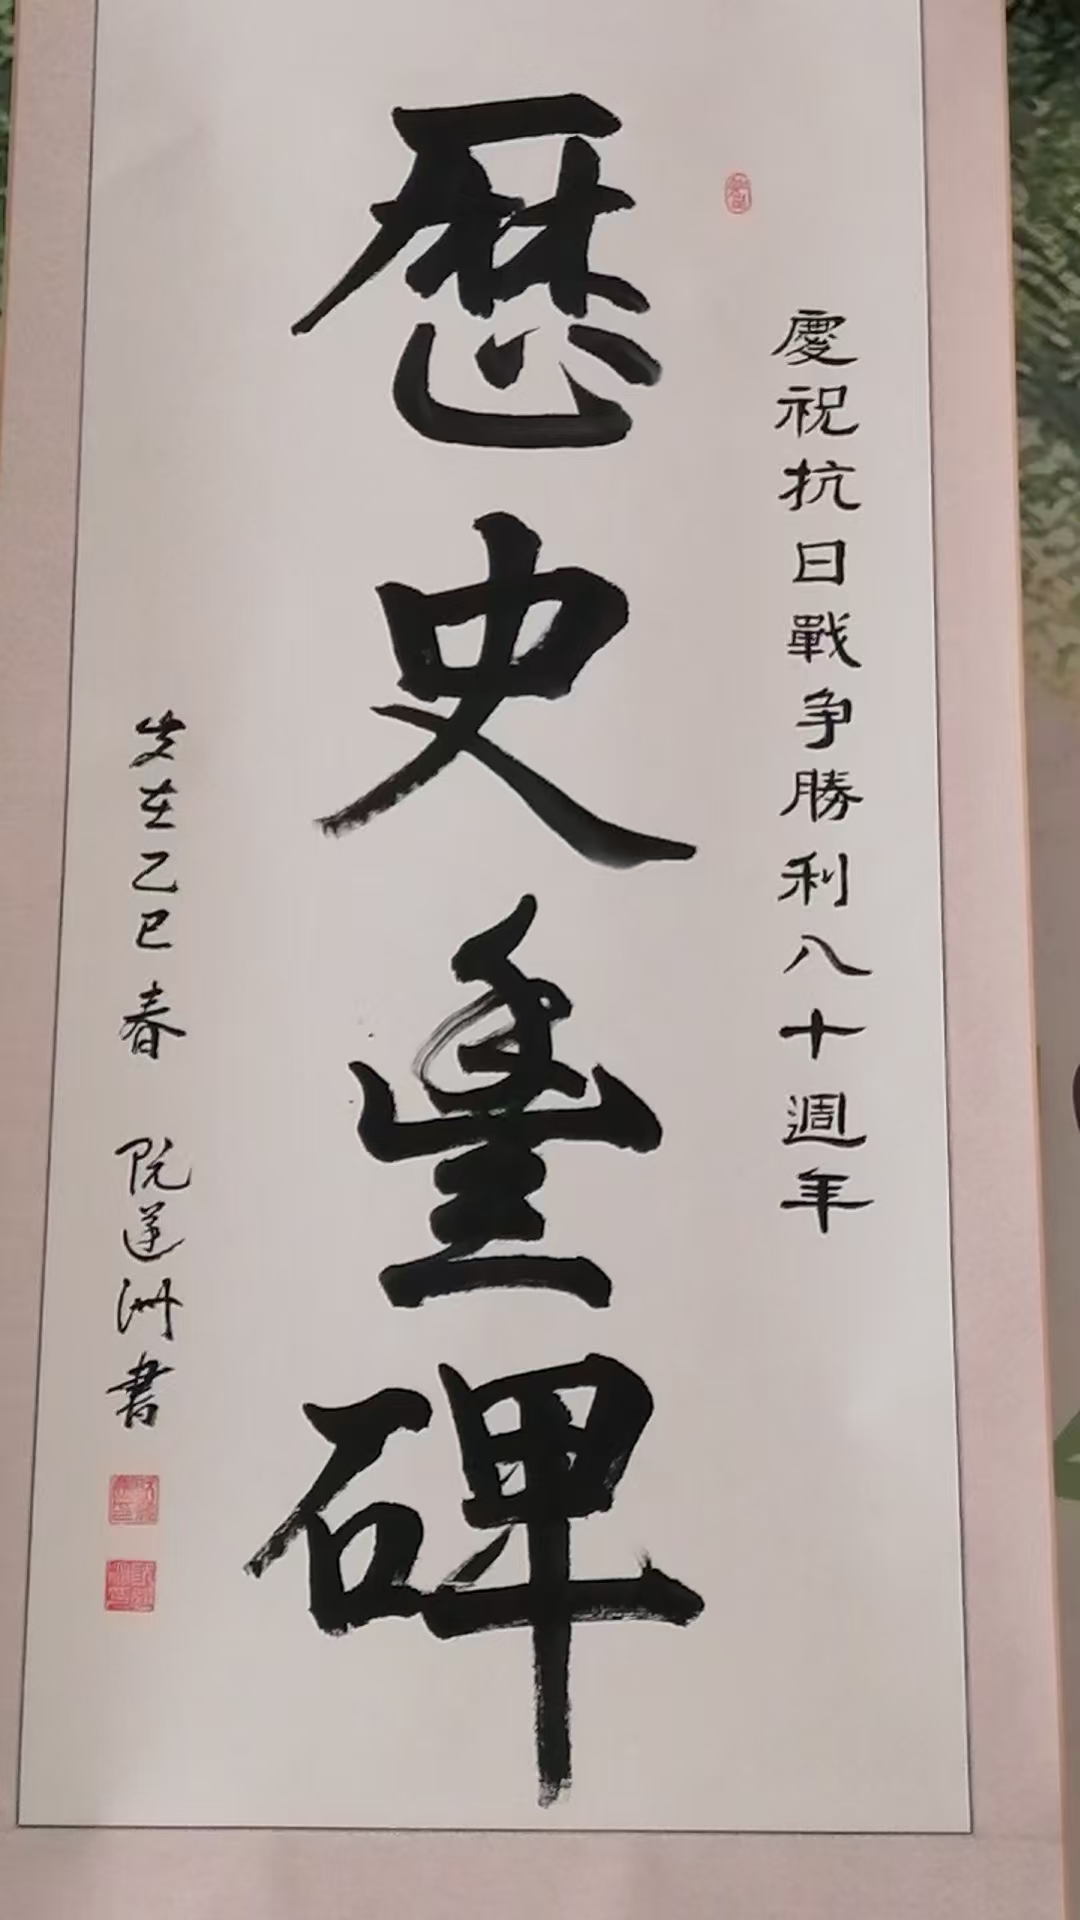 慶祝抗日戰争勝利八十週年
歷史豐碑
歲在乙巳春 阮洲書